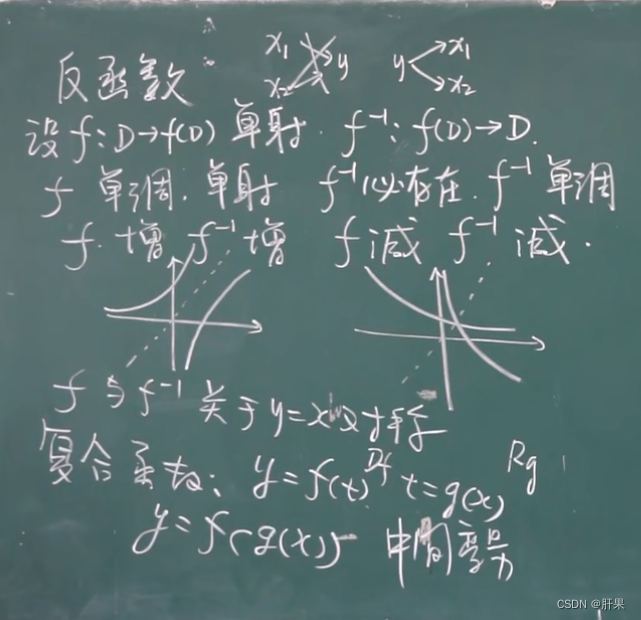 反函数: x₁ x₂ y y x₁ x₂
设f:D→f(D) 单射. f⁻¹:f(D)→D.
f 单调.单射 f⁻¹必存在.f⁻¹单调
f.增 f⁻¹增 f减 f⁻¹减.
f与f⁻¹关于y=x对称
复合函数: y=f(t) Df t=g(x) Rg
y=f(g(x)) 中间变量
CSDN @肝果